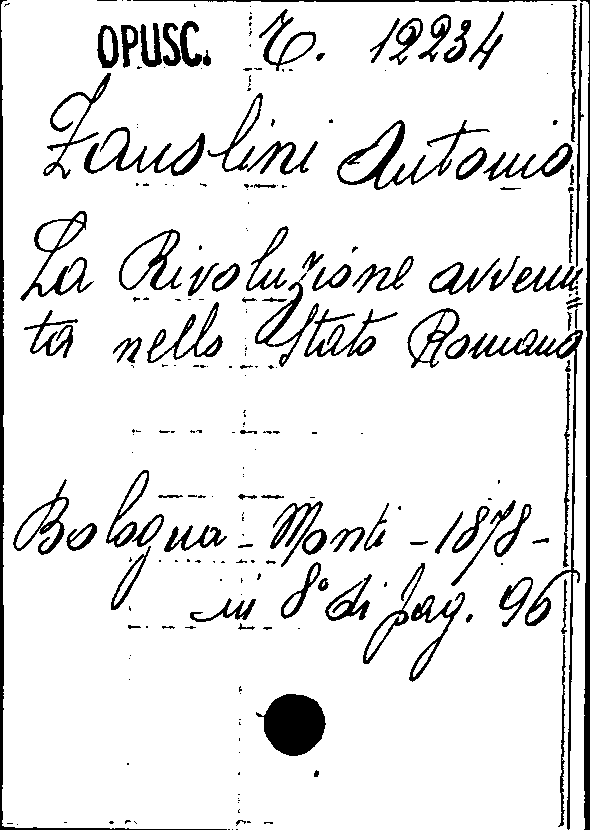 OPUSC. C. 12234
Zanolini Antonio
La Rivoluzione avvenu=
ta nello Stato Romano
Bologna - Monti - 1878 -
in 8° di pag. 96